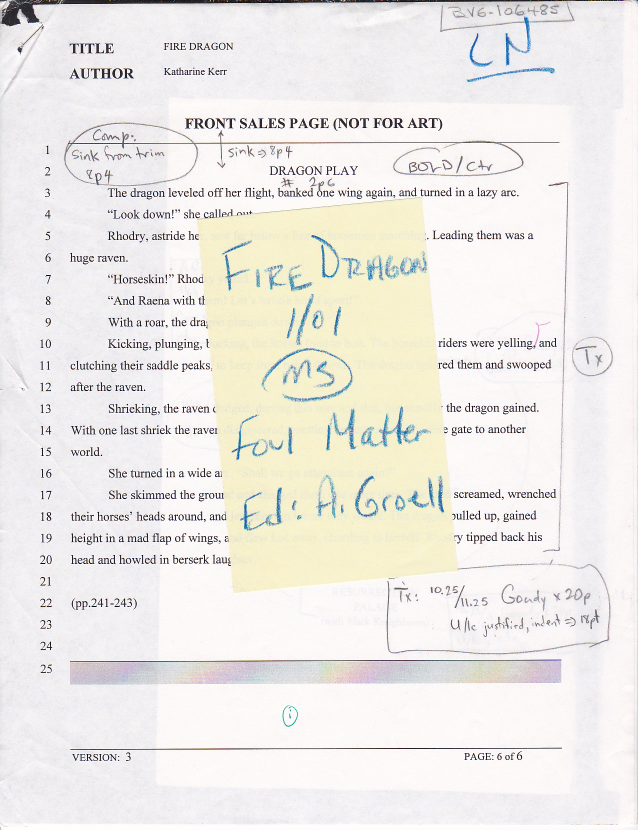 BV6-106485
LN
TITLE FIRE DRAGON
AUTHOR Katharine Kerr
FRONT SALES PAGE (NOT FOR ART)
Comp:
sink from trim
8p4
sink → 8p4
BOLD/Ctr
1
2 DRAGON PLAY
# 2p6
3 The dragon leveled off her flight, banked one wing again, and turned in a lazy arc.
4 "Look down!" she called out.
5 Rhodry, astride he . Leading them was a
6 huge raven.
7 "Horseskin!" Rhod
8 "And Raena with th
9 With a roar, the dra
10 Kicking, plunging, b riders were yelling, and
11 clutching their saddle peaks, red them and swooped
12 after the raven.
13 Shrieking, the raven the dragon gained.
14 With one last shriek the raven e gate to another
15 world.
16 She turned in a wide a
17 She skimmed the ground screamed, wrenched
18 their horses' heads around, and pulled up, gained
19 height in a mad flap of wings, a ry tipped back his
20 head and howled in berserk laug
21
22 (pp.241-243)
23
24
25
FIRE DRAGON
1/01
MS
Foul Matter
Ed: A. Groell
Tx
Tx: 10.25/11.25 Goudy x 20p
U/lc justified, indent ⇒ 18pt
i
VERSION: 3 PAGE: 6 of 6